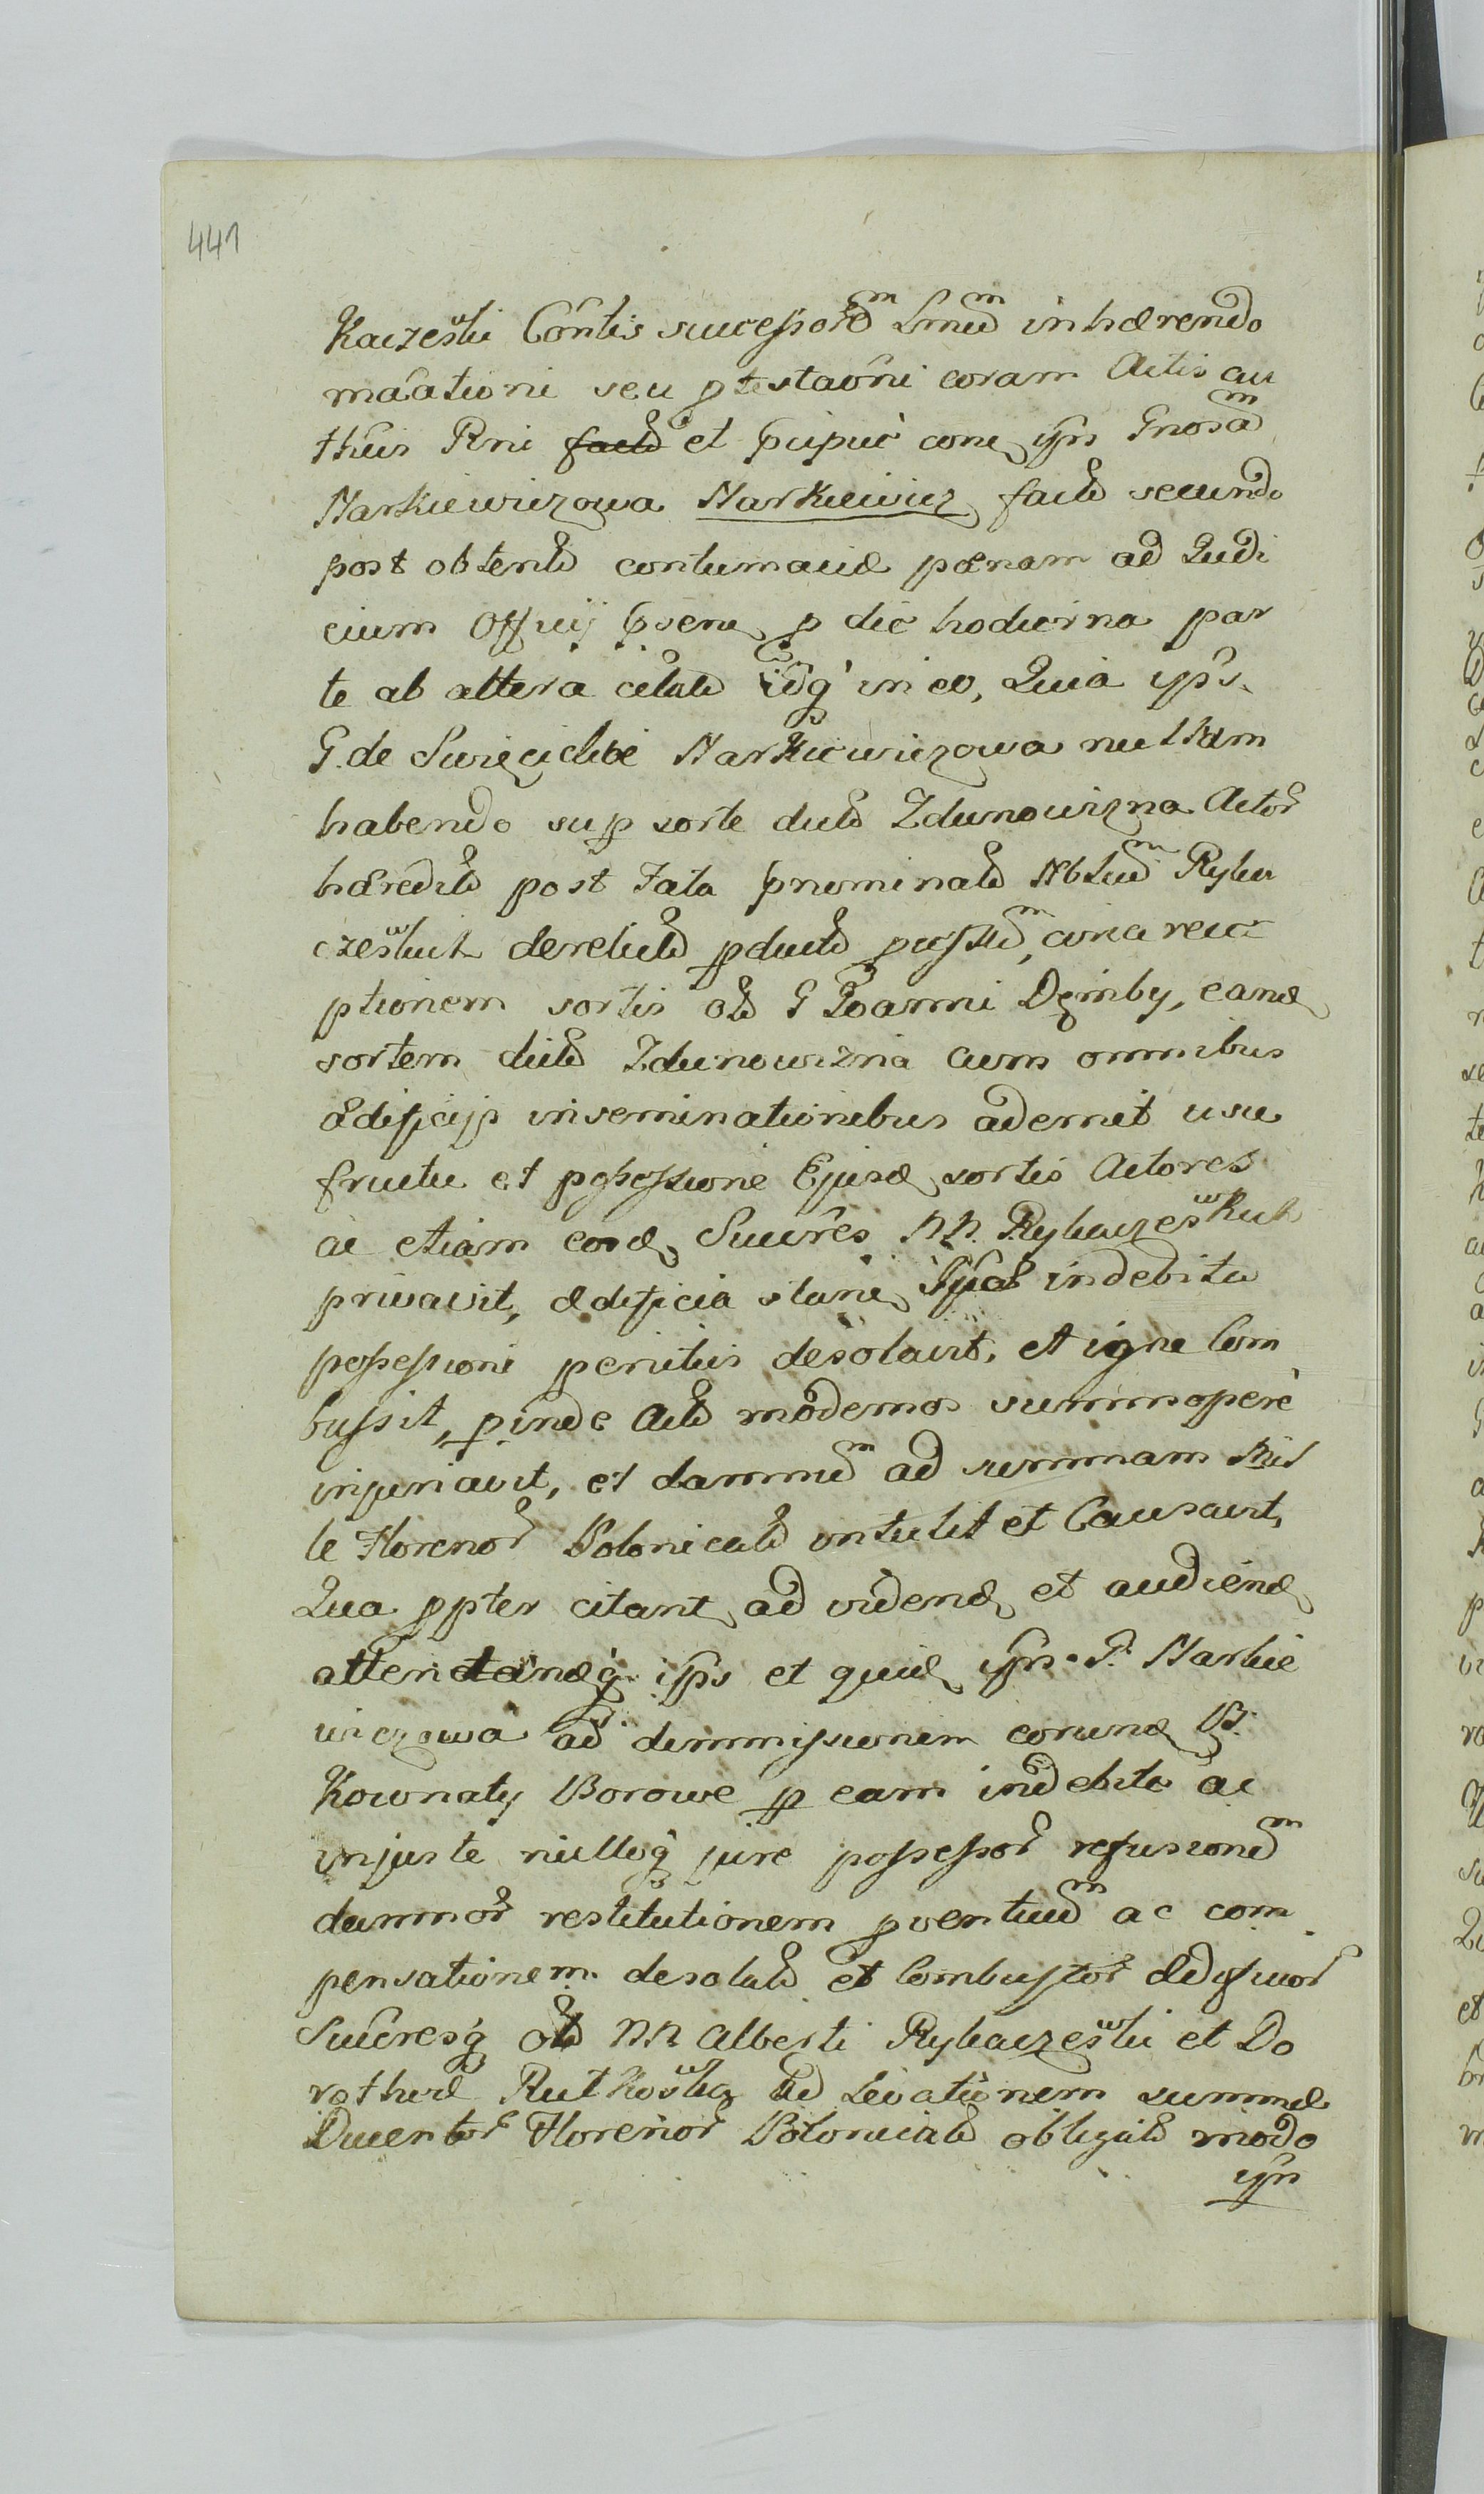 441
Kaczewski Contis sucessorem Lmem inhærendo
maationi seu ptestaoni coram Actis au
theis Rni et cone ipn Gnosam
Narkiewiczowa Narkiewicz facte secundo
post obtente contumaciæ pænam ad Judi
cium Officij p die hodierna par
te ab altera citate idq in eo, Quia ips
G. de Narkiewiczowa nullam
habendo sup sorte dicte Zdunowizna Actor
hæredite post Fata pnominate Nbtum Ryba
czewskich derelicte pducte circa rece
ptionem sortis ole G Joanni Dęmby, eand
sortem dicte Zdunowizna cum omnibus
ædificijs inseminationibus ademit usu
fructu et possessione Ejusd sortis Actores
ac etiam eosd Sucres NN. Rybaczewskich
privavit, ædificia stane indebita
possessioni penitus desolavit, et igne Com
bussit, pinde Acte modernos summopere
injuriavit, et damnum ad summam Mil
le Florenor Polonicale intulit et Causavit,
Qua ppter citant ad vidend et audiend
attendendq ips et quid ipn G. Narkie
wiczowa ad dimmissionem eorund B.
Kownaty Borowe p eam indebite ac
injuste nulloq jure possessor refusionem
damnor restitutionem pventum ac com
pensationem desolate et Combustor ædificior
Sucresq ole NN Alberti Rybaczewski et Do
rotheæ Rutkowska ad levationem summæ
Ducentor Florenor Polonicale obligate modo
ipn